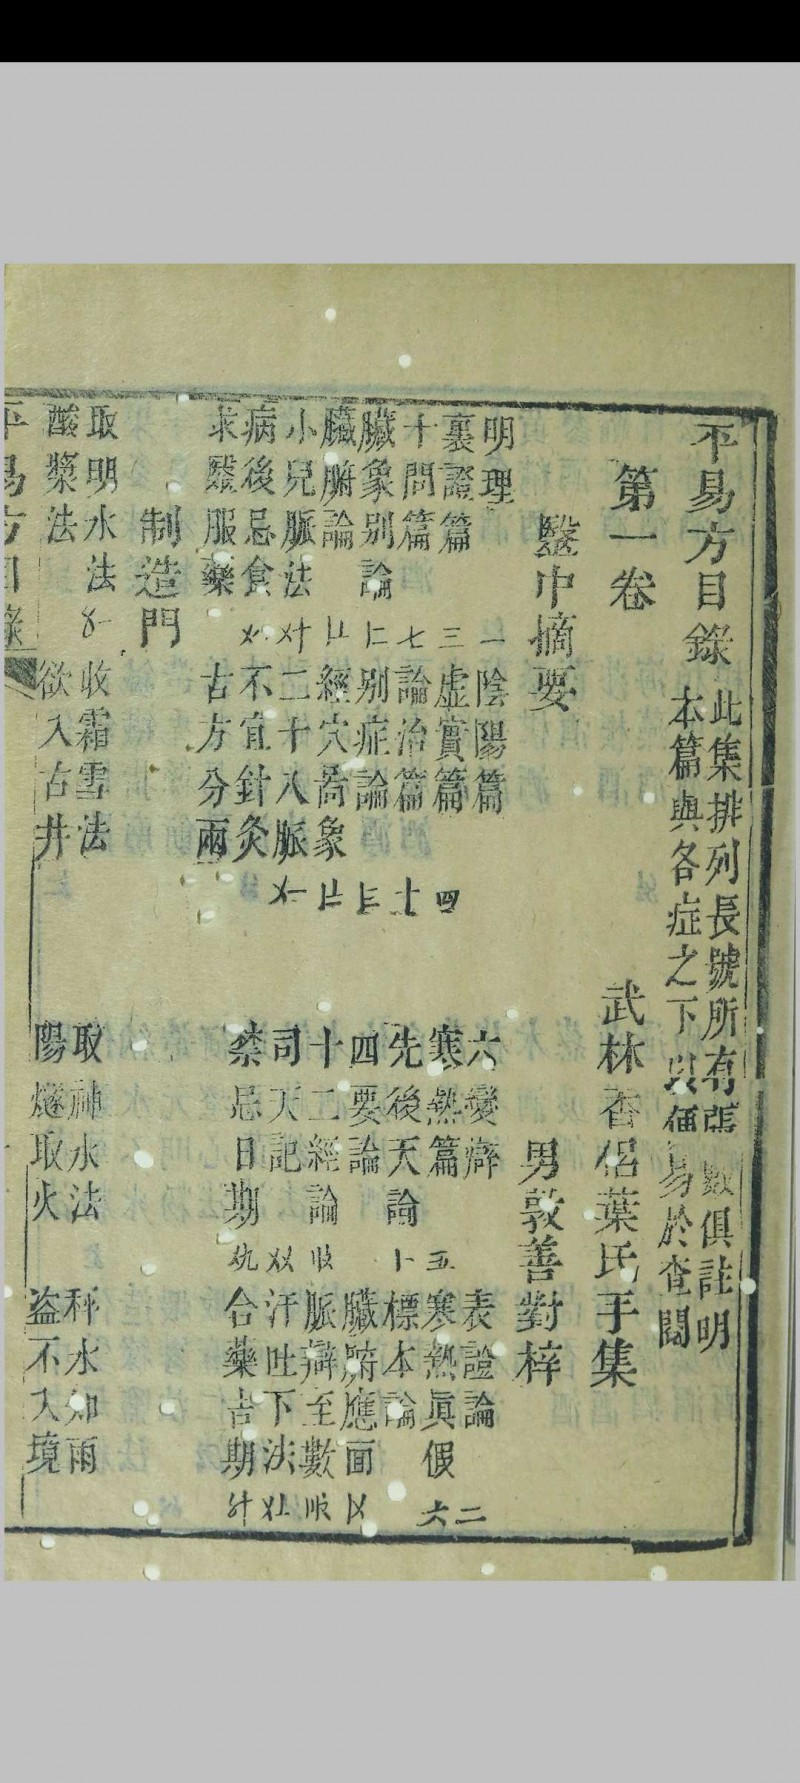 平易方目錄 此集排列長號所有張數俱註明
本篇與各症之下以便易於查閱
第一卷 武林香侶葉氏手集
醫中摘要 男敦善對梓
明理 一 陰陽篇 六變辨 表證論 二
裏證篇 三 虛實篇 四 寒熱篇 五 寒熱眞假 六
十問篇 七 論治篇 十 先後天論 標本論
臟象別論 別症論 四要論 臟腑應面
臟腑論 經穴喬象 十二經論 脈辯至數
小兒脈法 二十八脈 司天記 汗吐下法
病後忌食 不宜針灸 禁忌日期 合藥吉期
求醫服藥 古方分兩
制造門
取明水法 收霜雪法 取神水法 秤水知雨
酸漿法 欲入古井 陽燧取火 盗不入境
平易方目錄